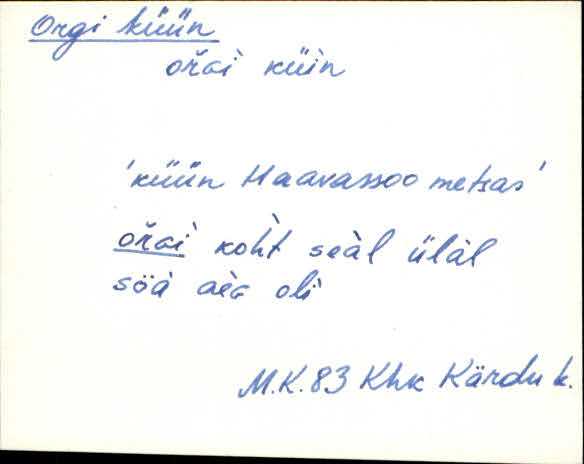 Orgi küün
ořGì küìn
'küün Haavassoo metsas'
ořGì koh̀t seàl üläl
sõà aèG olì
M.K. 83 Khk Kärdu k.